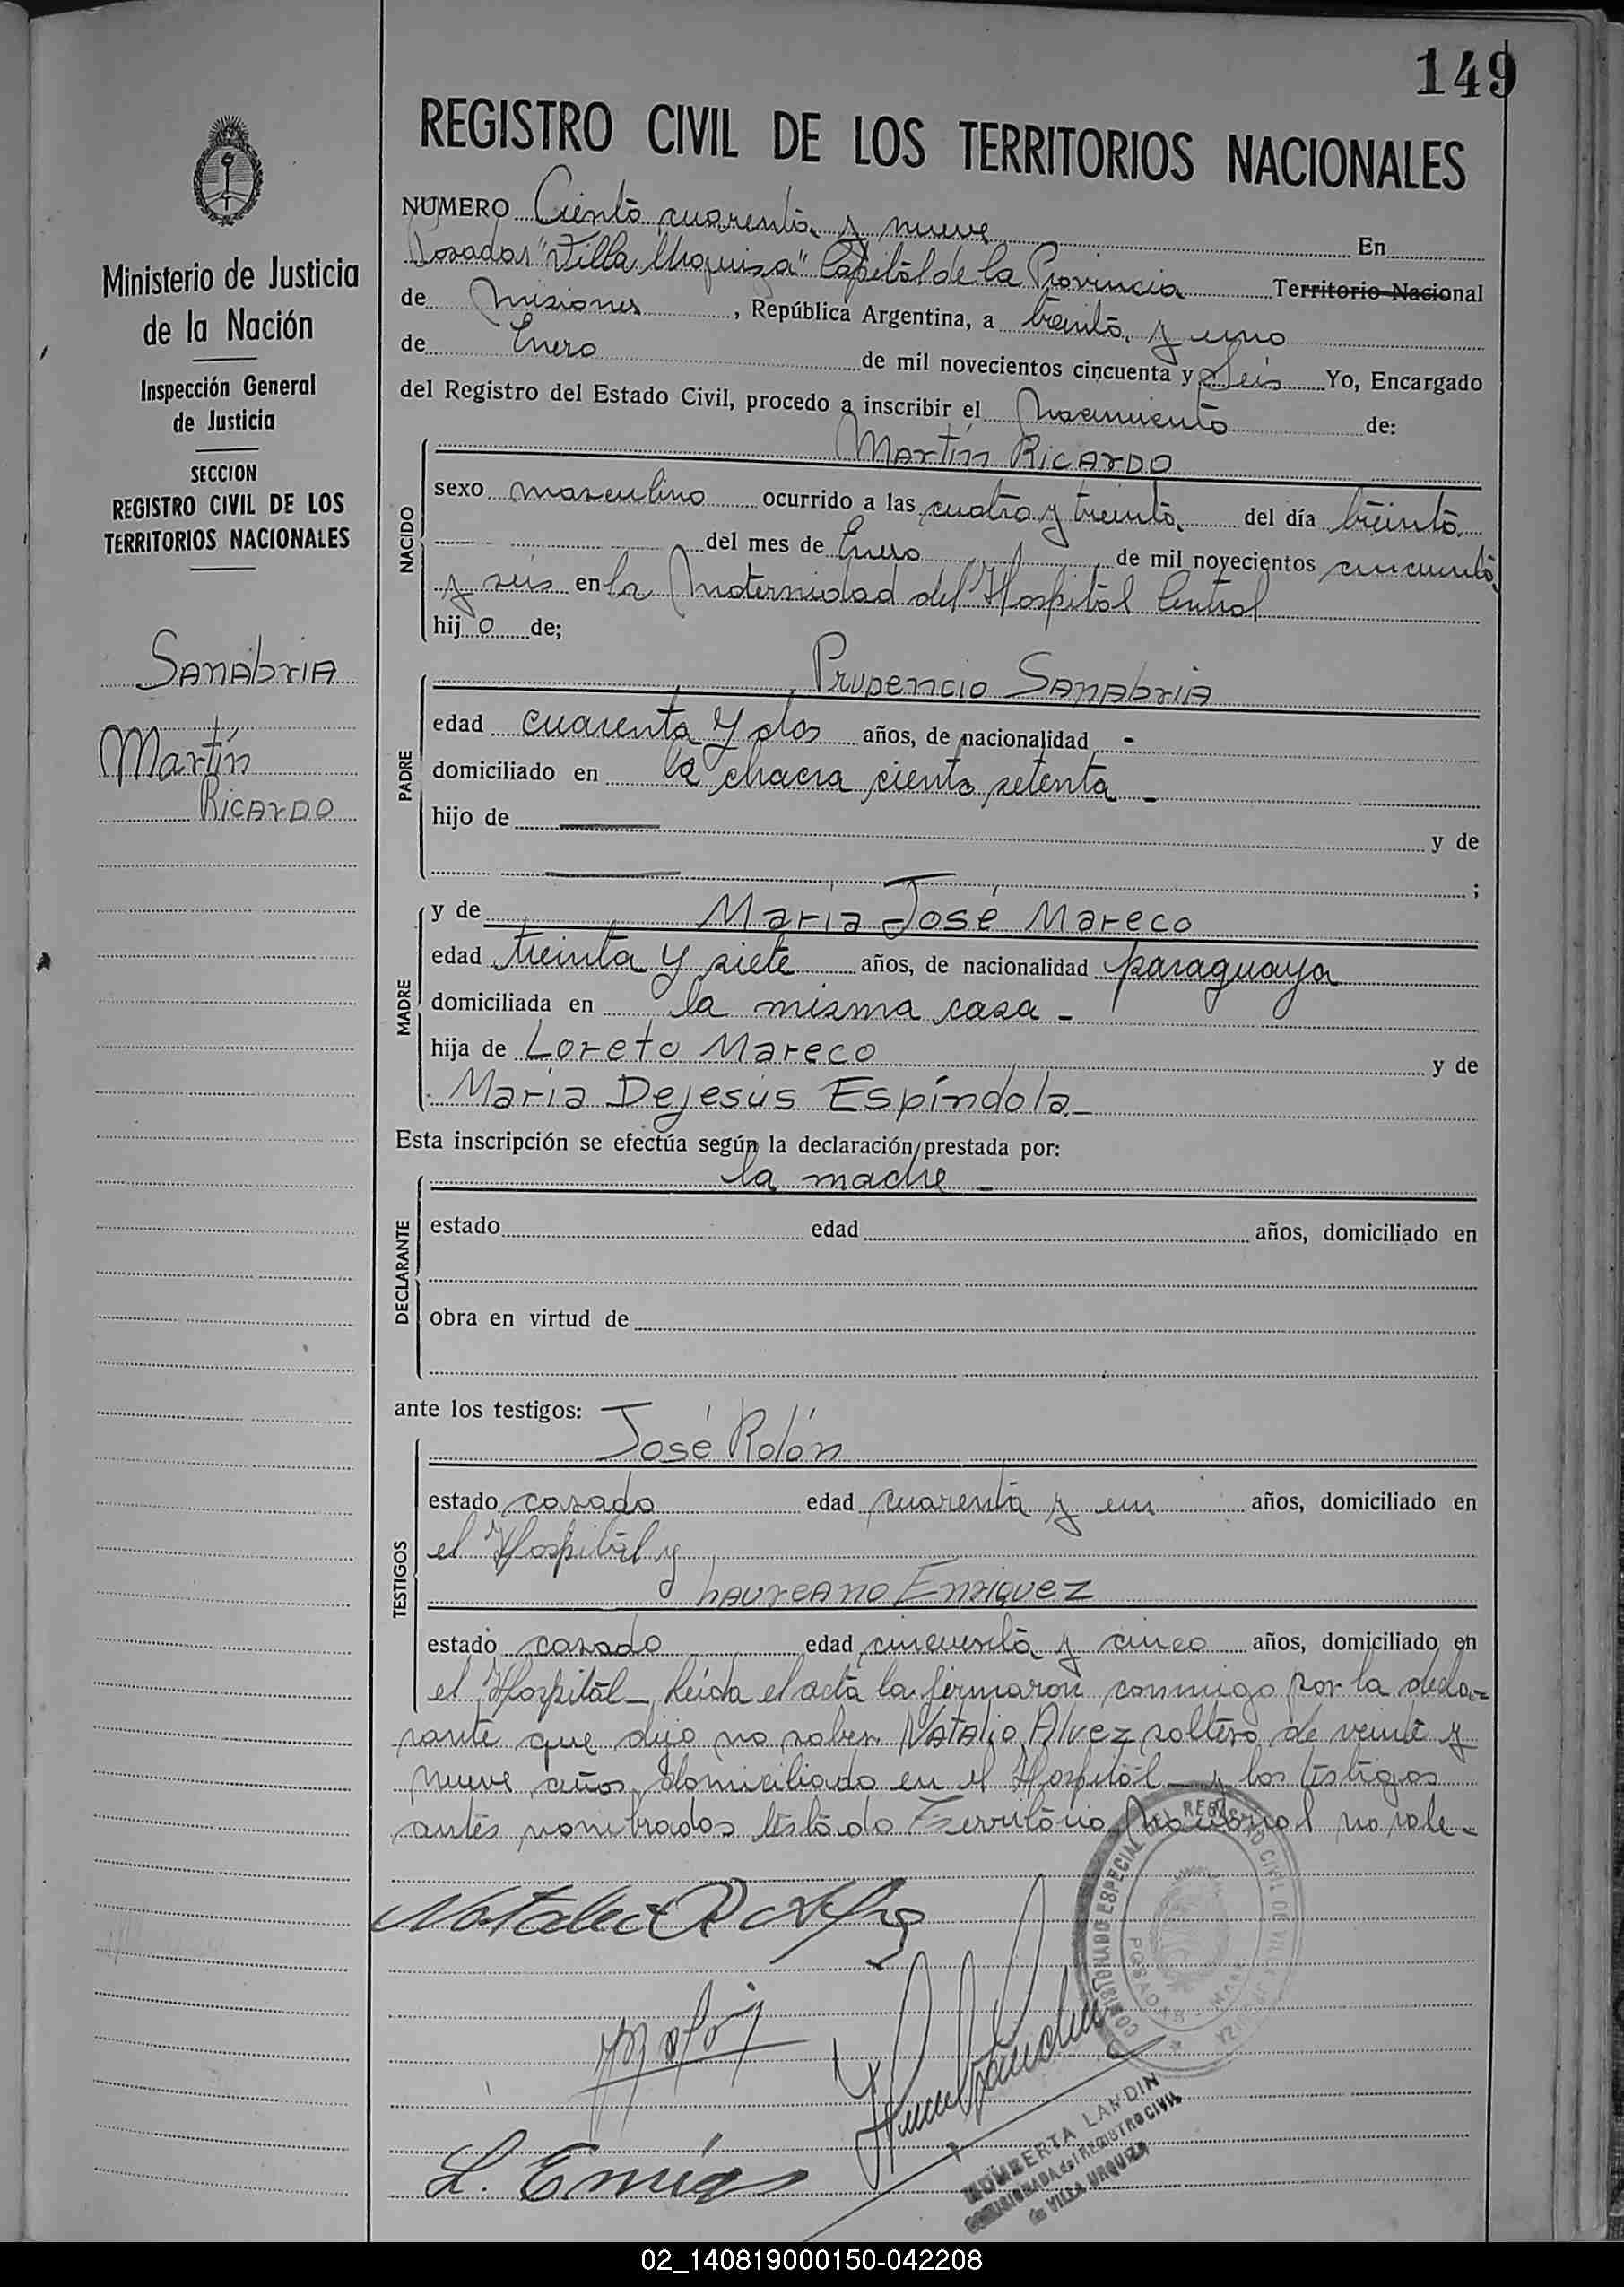 149
REGISTRO CIVIL DE LOS TERRITORIOS NACIONALES
Ministerio de Justicia
de la Nación
Inspección General
de Justicia
SECCION
REGISTRO CIVIL DE LOS
TERRITORIOS NACIONALES
SANAbriA
Martín
RicArDO
NUMERO Ciento cuarenta y nueve En
Posadas "Villa Urquiza" Capital de la Provincia Territorio Nacional
de Misiones, República Argentina, a treinta y uno
de Enero de mil novecientos cincuenta y Seis Yo, Encargado
del Registro del Estado Civil, procedo a inscribir el Nacimiento de:
NACIDO
MArtín RicArDO
sexo masculino ocurrido a las cuatro y treinta del día treinta
del mes de Enero de mil novecientos cincuenta
y seis en la Maternidad del Hospital Central
hijo de;
PADRE
PruDencio SANAbriA
edad cuarenta y dos años, de nacionalidad -
domiciliado en la chacra ciento setenta -
hijo de y de
;
MADRE
y de María José Mareco
edad treinta y siete años, de nacionalidad paraguaya
domiciliada en la misma casa -
hija de Loreto Mareco y de
María Dejesús Espíndola
Esta inscripción se efectúa según la declaración prestada por:
DECLARANTE
la madre -
estado edad años, domiciliado en
obra en virtud de
ante los testigos:
TESTIGOS
José Rolón
estado casado edad cuarenta y un años, domiciliado en
el Hospital y
LAureAno Enriquez
estado casado edad cincuenta y cinco años, domiciliado en
el Hospital - Leída el acta la firmaron conmigo por la decla-
rante que dijo no saber NAtAlio Alvez soltero de veinte y
nueve años domiciliado en el Hospital - y los testigos
antes nombrados testado Territorio Nacional no vale -
COMISIONADO ESPECIAL DEL REGISTRO CIVIL DE VILLA URQUIZA
POSADAS
L. Enriq
HUMBERTA LANDIN
COMISIONADA del REGISTRO CIVIL
de VILLA URQUIZA
02_140819000150-042208